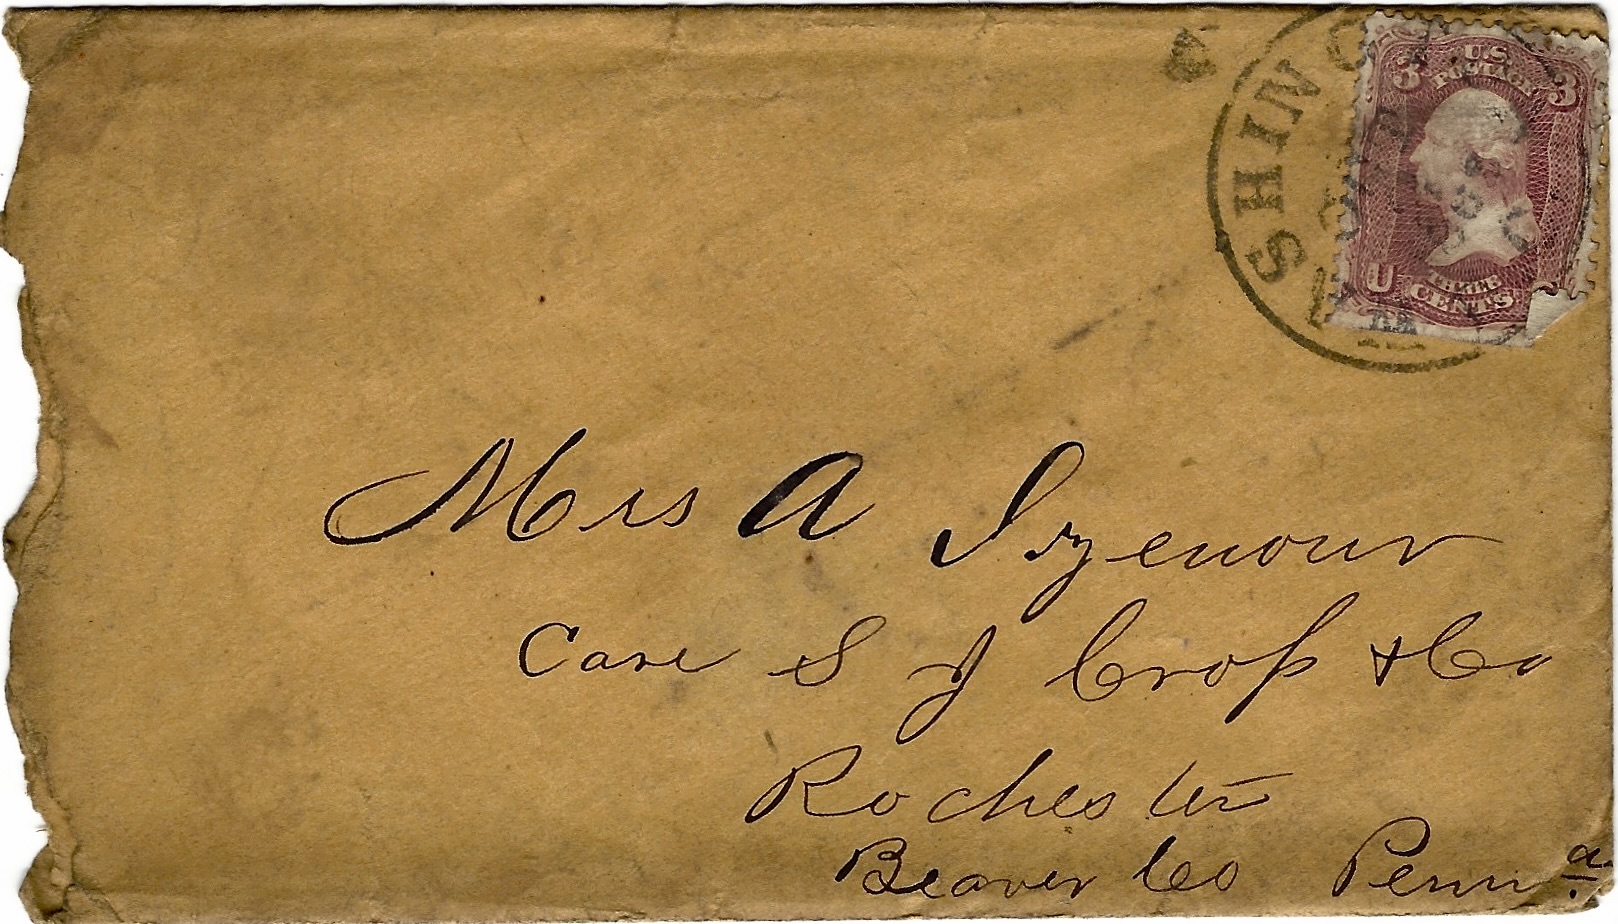 SHING
3 U.S. 3
POSTAGE
U
THREE
CENTS
Mrs A Seymour
Care S J Croſs & Co
Rochester
Beaver Co Penna.